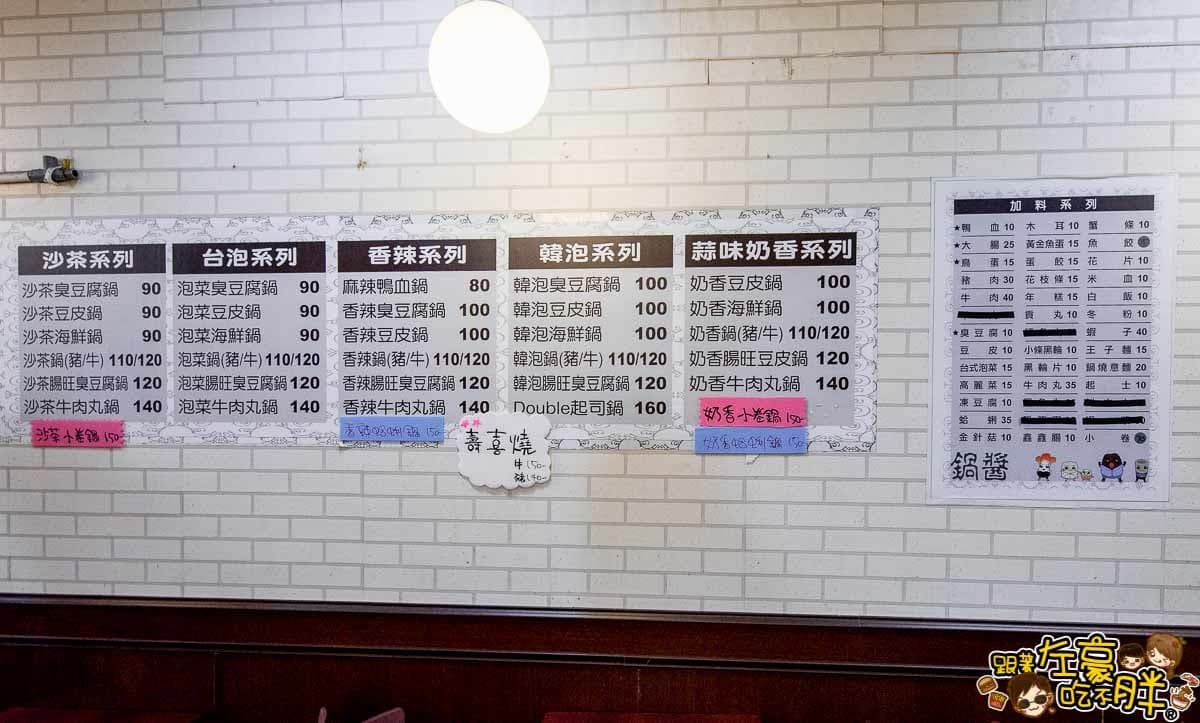 沙茶系列
沙茶臭豆腐鍋 90
沙茶豆皮鍋 90
沙茶海鮮鍋 90
沙茶鍋(豬/牛) 110/120
沙茶腸旺臭豆腐鍋 120
沙茶牛肉丸鍋 140
沙茶小卷鍋 150-
台泡系列
泡菜臭豆腐鍋 90
泡菜豆皮鍋 90
泡菜海鮮鍋 90
泡菜鍋(豬/牛) 110/120
泡菜腸旺臭豆腐鍋 120
泡菜牛肉丸鍋 140
香辣系列
麻辣鴨血鍋 80
香辣臭豆腐鍋 100
香辣豆皮鍋 100
香辣鍋(豬/牛) 110/120
香辣腸旺臭豆腐鍋 120
香辣牛肉丸鍋 140
香辣蛤蜊鍋 150-
壽喜燒
牛150-
豬140-
韓泡系列
韓泡臭豆腐鍋 100
韓泡豆皮鍋 100
韓泡海鮮鍋 100
韓泡鍋(豬/牛) 110/120
韓泡腸旺臭豆腐鍋 120
Double起司鍋 160
蒜味奶香系列
奶香豆皮鍋 100
奶香海鮮鍋 100
奶香鍋(豬/牛) 110/120
奶香腸旺豆皮鍋 120
奶香牛肉丸鍋 140
奶香小卷鍋 150-
奶香蛤蜊鍋 150-
加料系列
★鴨血 10 木耳 10 蟹條 10
★大腸 25 黃金魚蛋 15 魚餃
★鳥蛋 15 蛋餃 15 花片 10
豬肉 30 花枝條 15 米血 10
牛肉 40 年糕 15 白飯 10
貢丸 10 冬粉 10
★臭豆腐 10 蝦子 40
豆皮 10 小條黑輪 10 王子麵 15
台式泡菜 15 黑輪片 10 鍋燒意麵 20
高麗菜 15 牛肉丸 35 起士 10
凍豆腐 10
蛤蜊 35
金針菇 10 鑫鑫腸 10 小卷
鍋醬
跟著左豪吃不胖®